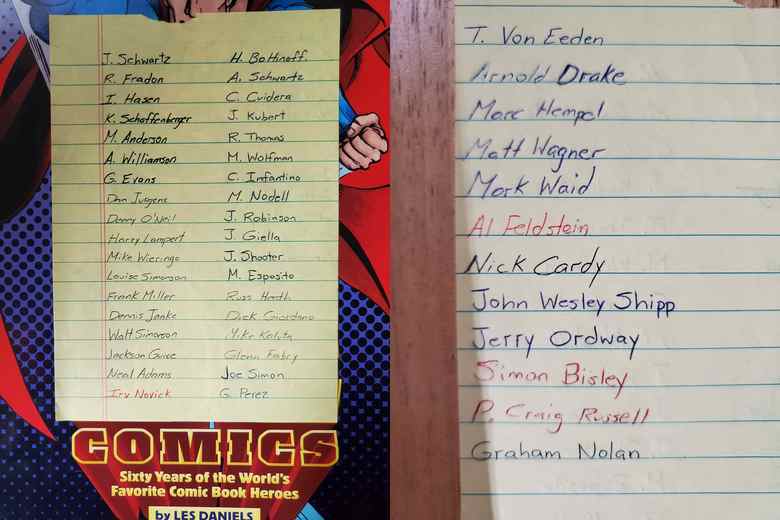 J. Schwartz
R. Fradon
I. Hasen
K. Schaffenberger
M. Anderson
A. Williamson
G. Evans
Dan Jurgens
Denny O'Neil
Harry Lampert
Mike Wieringo
Louise Simonson
Frank Miller
Dennis Janke
Walt Simonson
Jackson Guice
Neal Adams
Irv Novick
H. Boltinoff.
A. Schwartz
C. Cuidera
J. Kubert
R. Thomas
M. Wolfman
C. Infantino
M. Nodell
J. Robinson
J. Giella
J. Shooter
M. Esposito
Russ Heath
Dick Giordano
Mike Kaluta
Glenn Fabry
Joe Simon
G. Perez
COMICS
Sixty Years of the World's
Favorite Comic Book Heroes
by LES DANIELS
T. Von Eeden
Arnold Drake
Marc Hempel
Matt Wagner
Mark Waid
Al Feldstein
Nick Cardy
John Wesley Shipp
Jerry Ordway
Simon Bisley
P. Craig Russell
Graham Nolan